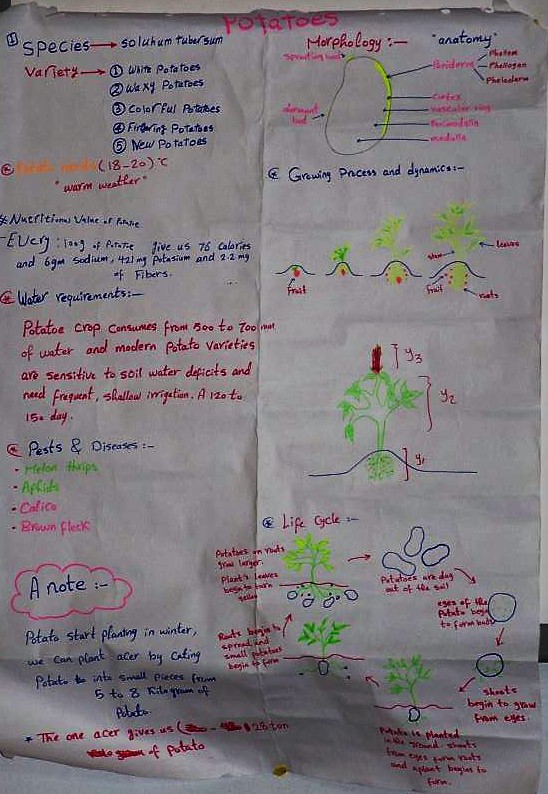 Potatoes
① Species → Soluhum tubersum
Variety → ① White Potatoes
② Waxy Potatoes
③ Colorful Potatoes
④ Fingering Potatoes
⑤ New Potatoes
(18-20)°C
"warm weather"
* Nutritional Value of Potatoe
- Every: 100g of Potatoe give us 76 Calories
and 6gm Sodium, 421 mg Potasium and 2.2 mg
of Fibers.
Water requirements:-
Potatoe crop consumes from 500 to 700 mm
of water and modern Potato varieties
are sensitive to soil water deficits and
need frequent, shallow irrigation. A 120 to
150 day.
Pests & Diseases:-
- Melon thrips
- Aphids
- Calico
- Brown fleck
A note:-
Potato start planting in winter,
we can plant acer by Cating
Potato to into small pieces from
5 to 8 Kilogram of
Potato
* The one acer gives us ( 28 ton
of potato
Morphology:- "anatomy"
Sprouting bud
Periderm
Phellem
Phellogen
Phelloderm
dormant bud
Cortex
vascular ring
medulla
Growing Process and dynamics:-
leaves
stem
fruit
fruit
roots
y3
y2
y1
Life Cycle:-
Potatoes on roots
grow larger.
Plant's leaves
begin to turn
yellow
Potatoes are dug
out of the soil
eyes of the
Potato begin
to form buds
shoots
begin to grow
from eyes.
Potato is planted
in the ground. shoots
from eyes form roots
and aplant begins to
form.
Roots begin to
spread and
small potatoes
begin to form